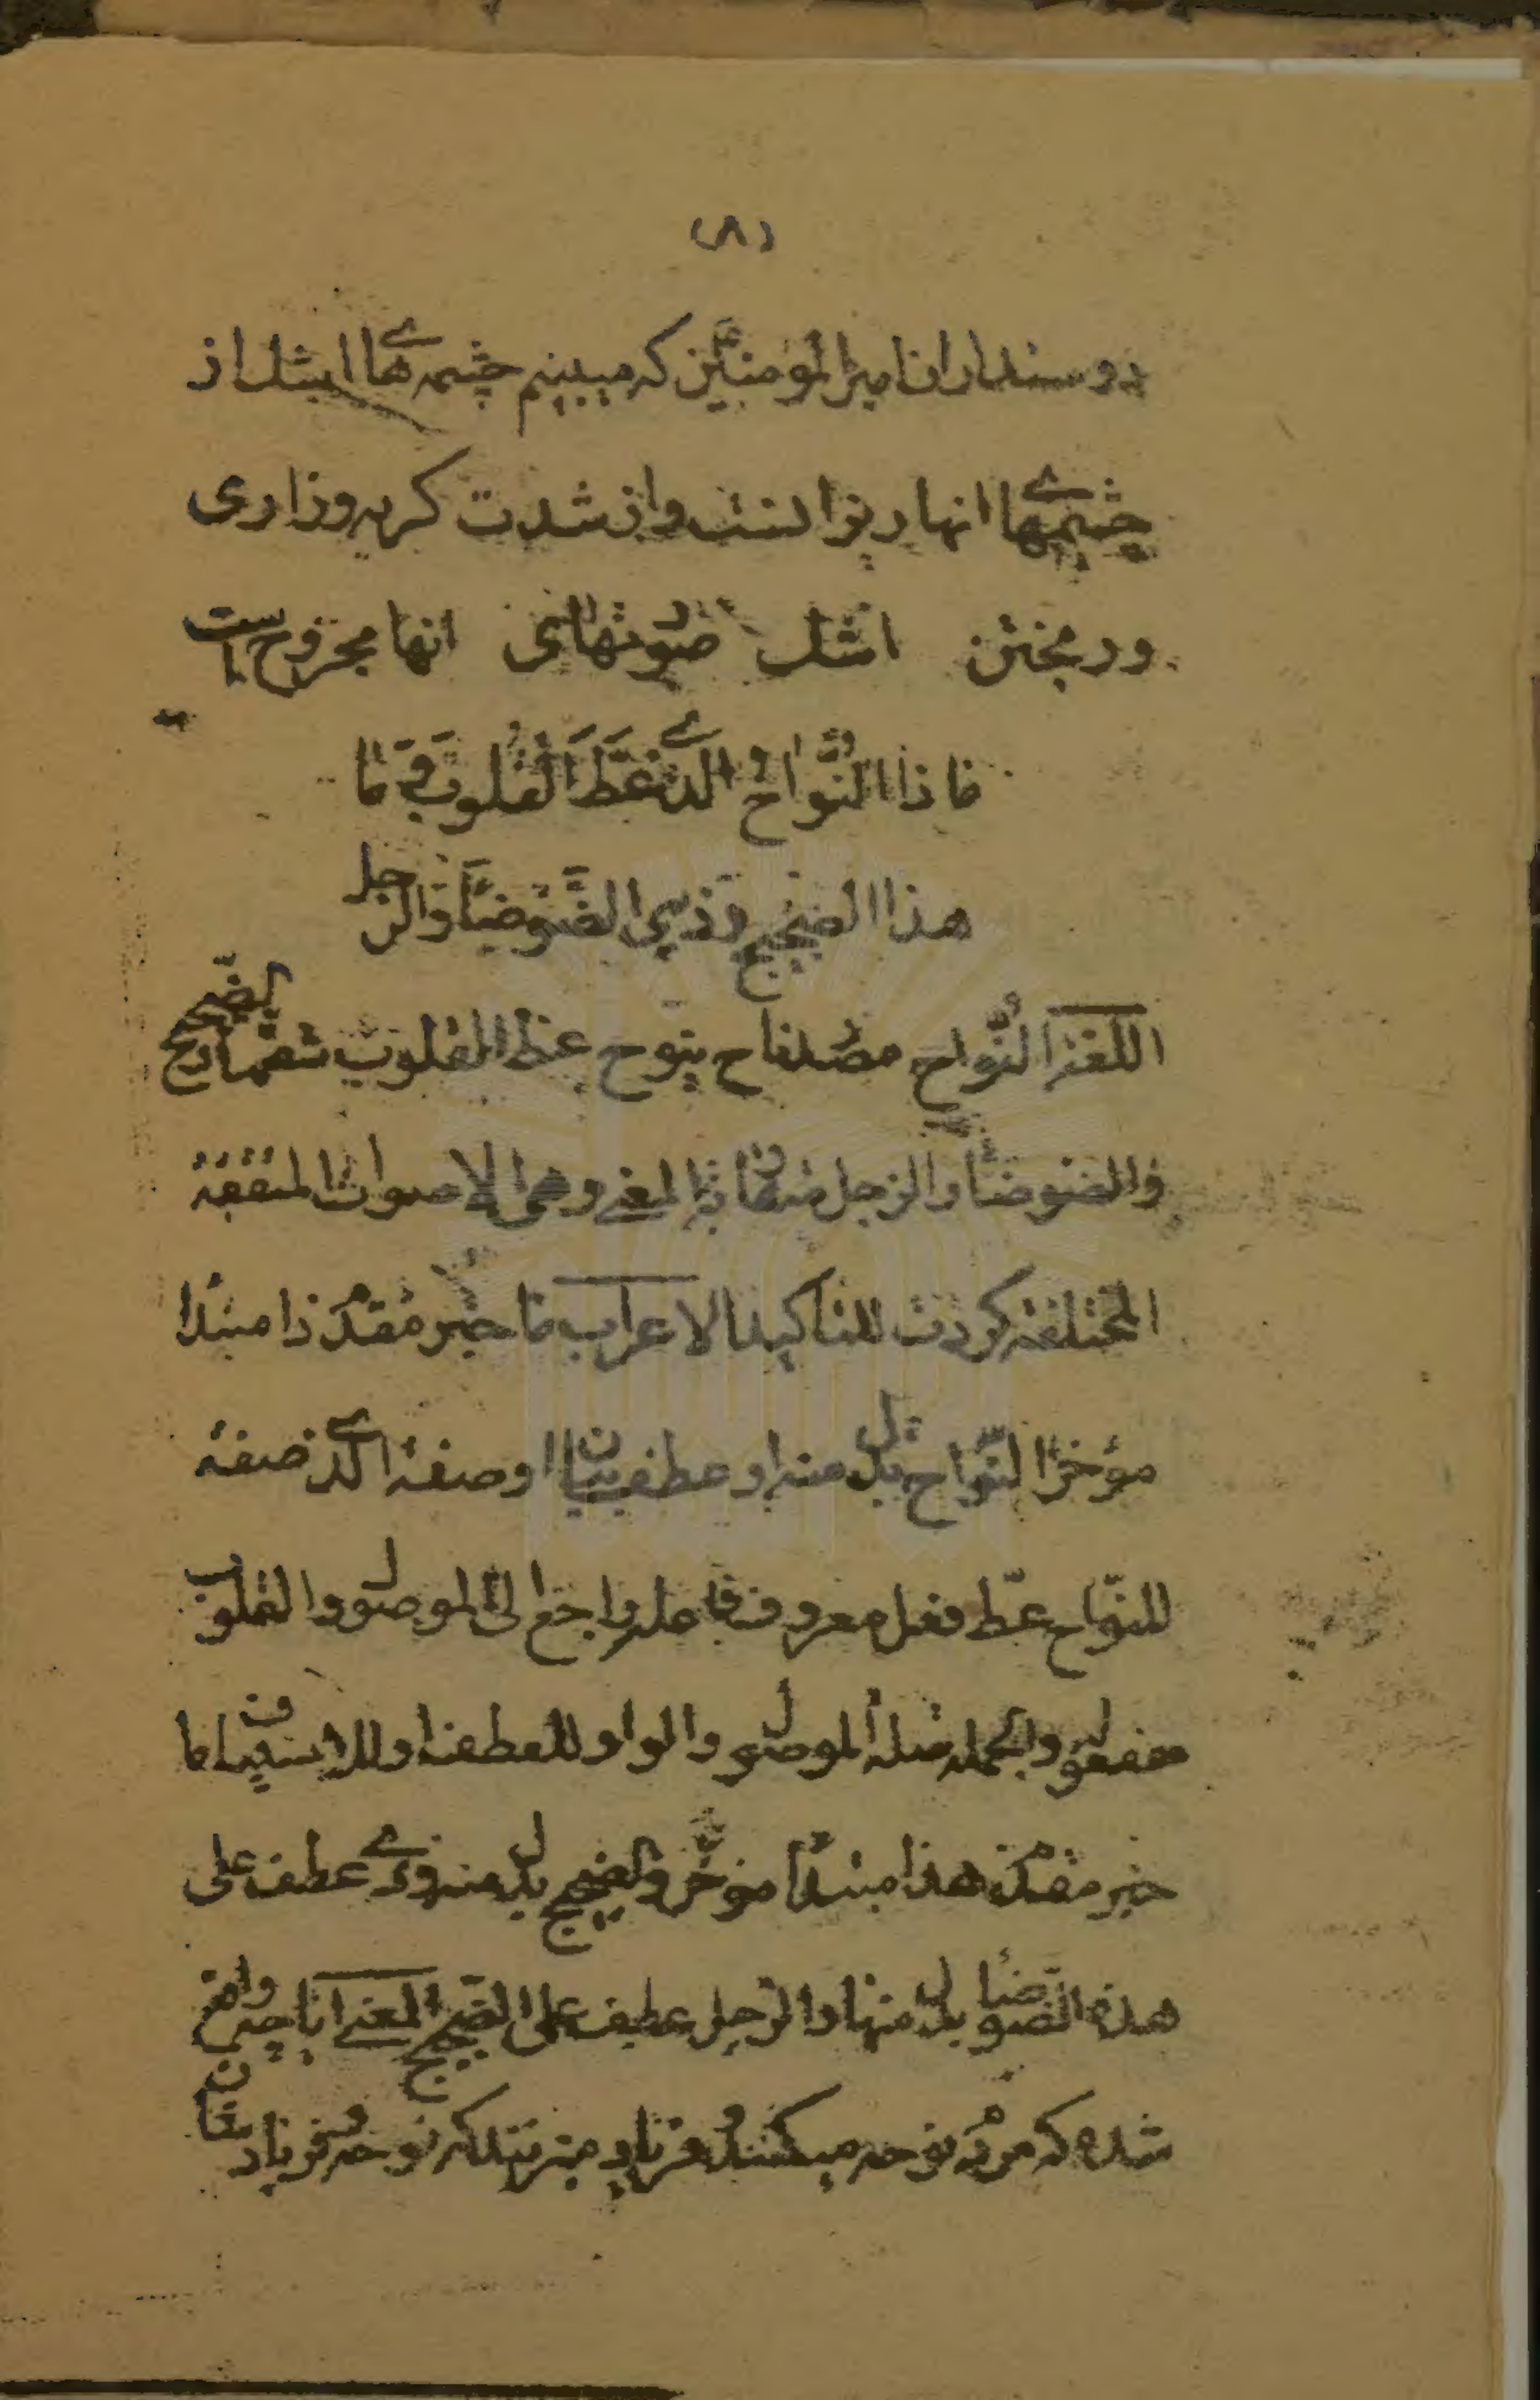 (٨)
دوستداران امیرالمومنین که میبینم چشمه های اشک از
چشمهای انها ریزانست و از شدت کریه وزاری
و ریختن اشک صوتهای انها مجروح است
ماذا النُّواحُ الَّذی عَطَّ القُلوبَ وَمَا
هذا الضجیج وذی الضَّوضَاءُ وَالزجل
اللغة النُّواح مصدر ناح ینوح عط القلوب شقها الضّجیج
والضوضاء والزجل متقاربة المعنی وهی الاصوات المتفقة
المختلفة کررت للتاکید الاعراب ما خبر مقدم ذا مبتدا
مؤخر النّواح بدل منه او عطف بیان او صفة الذی صفة
للنّواح عطّ فعل معروف فاعله راجع الی الموصول والقلوب
مفعول والجمله صلة الموصول والواو للعطف او للاستیناف ما
خبر مقدم هذا مبتدأ مؤخّر والضجیج بدل منه وذی عطف علی
هذا الضوضاء بدل منها والزجل عطف علی الضّجیج المعنی ایا چه واقع
شده که مردم نوحه میکنند و فریاد میزنند که نوحه و فریاد